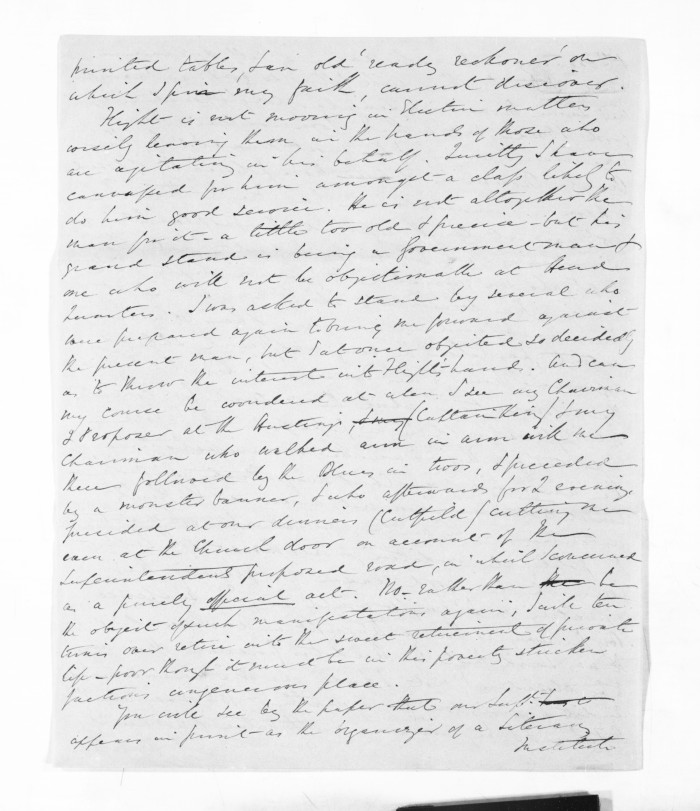 printed tables, & an old 'ready reckoner' on
which I pin my faith, cannot discover.
Flight is not moving in Election matters
wisely leaving them in the hands of those who
are agitating in his behalf. Quietly I have
canvassed for him amongst a class likely to
do him good service. He is not altogether the
man for it - a little too old & precise - but his
grand stand is being a Government man &
one who will not be objectionable at Head
Quarters. I was asked to stand by several who
were prepared again to bring me forward against
the present man, but I at once objected so decidedly
as to throw the interest into Flight's hands. And can
my course be wondered at when I see my Chairman
& Proposer at the Hustings, & my (Captain King) & my
Chairman who walked arm in arm with me
there followed by the Blues in twos, & preceded
by a monster banner, & who afterwards for 2 evenings
presided at our dinners (Cutfield) cutting me
even at the Church door on account of the
Superintendents proposed road, in which I concurred
as a purely official act. No - rather than the be
the object of such manifestations again, I will ten
times over retire into the sweet retirement of private
life - poor though it must be in this poverty stricken
factious ungenerous place.
You will see by the paper that our Supt.
appears in print as the organizer of a Literary
Institute